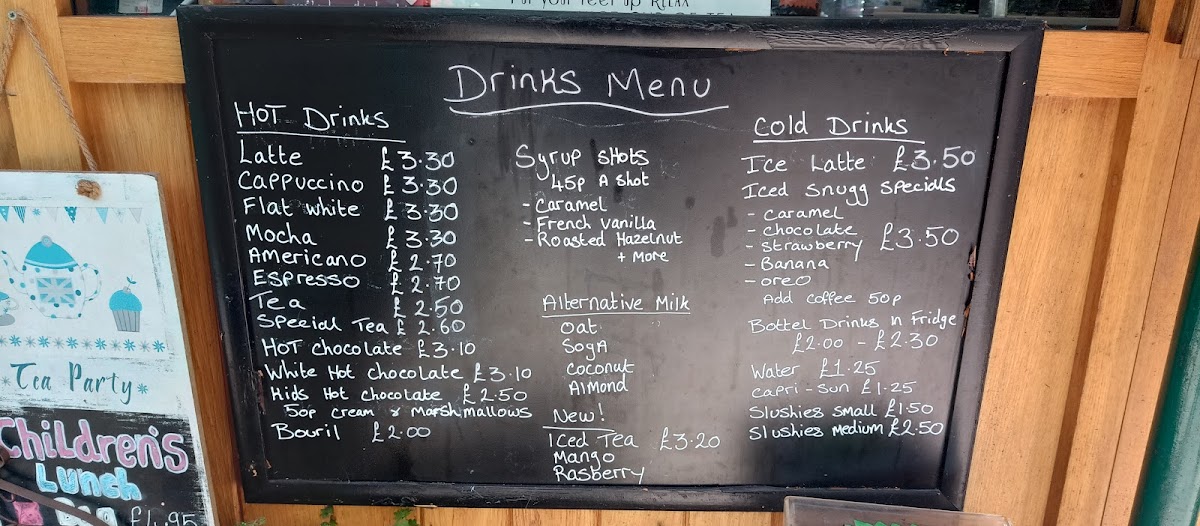 Put your feet up RELAX
Drinks Menu
HOT Drinks
Latte £3.30
Cappuccino £3.30
Flat white £3.30
Mocha £3.30
Americano £2.70
Espresso £2.70
Tea £2.50
Special Tea £2.60
HOT chocolate £3.10
White Hot chocolate £3.10
Kids Hot chocolate £2.50
50p cream & Marshmallows
Bouril £2.00
Syrup SHots
45p A Shot
- Caramel
- French Vanilla
- Roasted Hazelnut
+ More
Alternative Milk
Oat
SogA
Coconut
Almond
New!
Iced Tea £3.20
Mango
Rasberry
Cold Drinks
Ice Latte £3.50
Iced Snugg Specials
- Caramel
- chocolate
- Strawberry £3.50
- Banana
- oreo
Add coffee 50p
Bottel Drinks in Fridge
£2.00 - £2.30
Water £1.25
Capri-Sun £1.25
Slushies Small £1.50
Slushies Medium £2.50
Tea Party
Children's
Lunch
£4.95